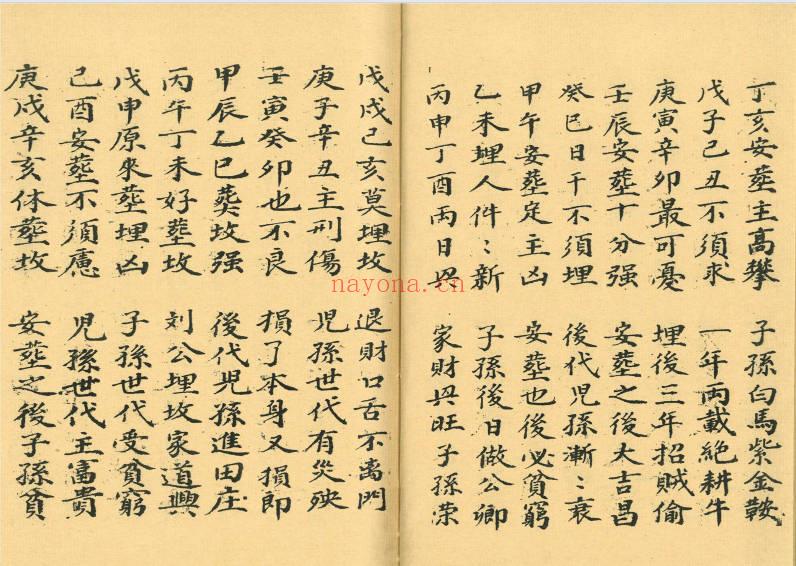 丁亥安葬主高攀 子孫白馬紫金鞍
戊子己丑不須求 一年両載絶耕牛
庚寅辛卯最可憂 埋後三年招賊偷
壬辰安葬十分強 安葬之後大吉昌
癸巳日干不須埋 後代児孫漸〻衰
甲午安葬定主凶 安葬也後必貧窮
乙未埋人件〻新 子孫後日做公卿
丙申丁酉両日㒷 家財㒷旺子孫荣
戊戌己亥莫埋坟 退財口舌不离門
庚子辛丑主刑傷 児孫世代有災殃
壬寅癸卯也不良 損了本身又損郎
甲辰乙巳葬坟强 後代児孫進田庄
丙午丁未好葬坟 刘公埋坟家道興
戊申原来葬埋凶 子孫世代受貧窮
己酉安葬不須慮 児孫世代主富貴
庚戌辛亥休葬坟 安葬之後子孫貧
nayona.cn